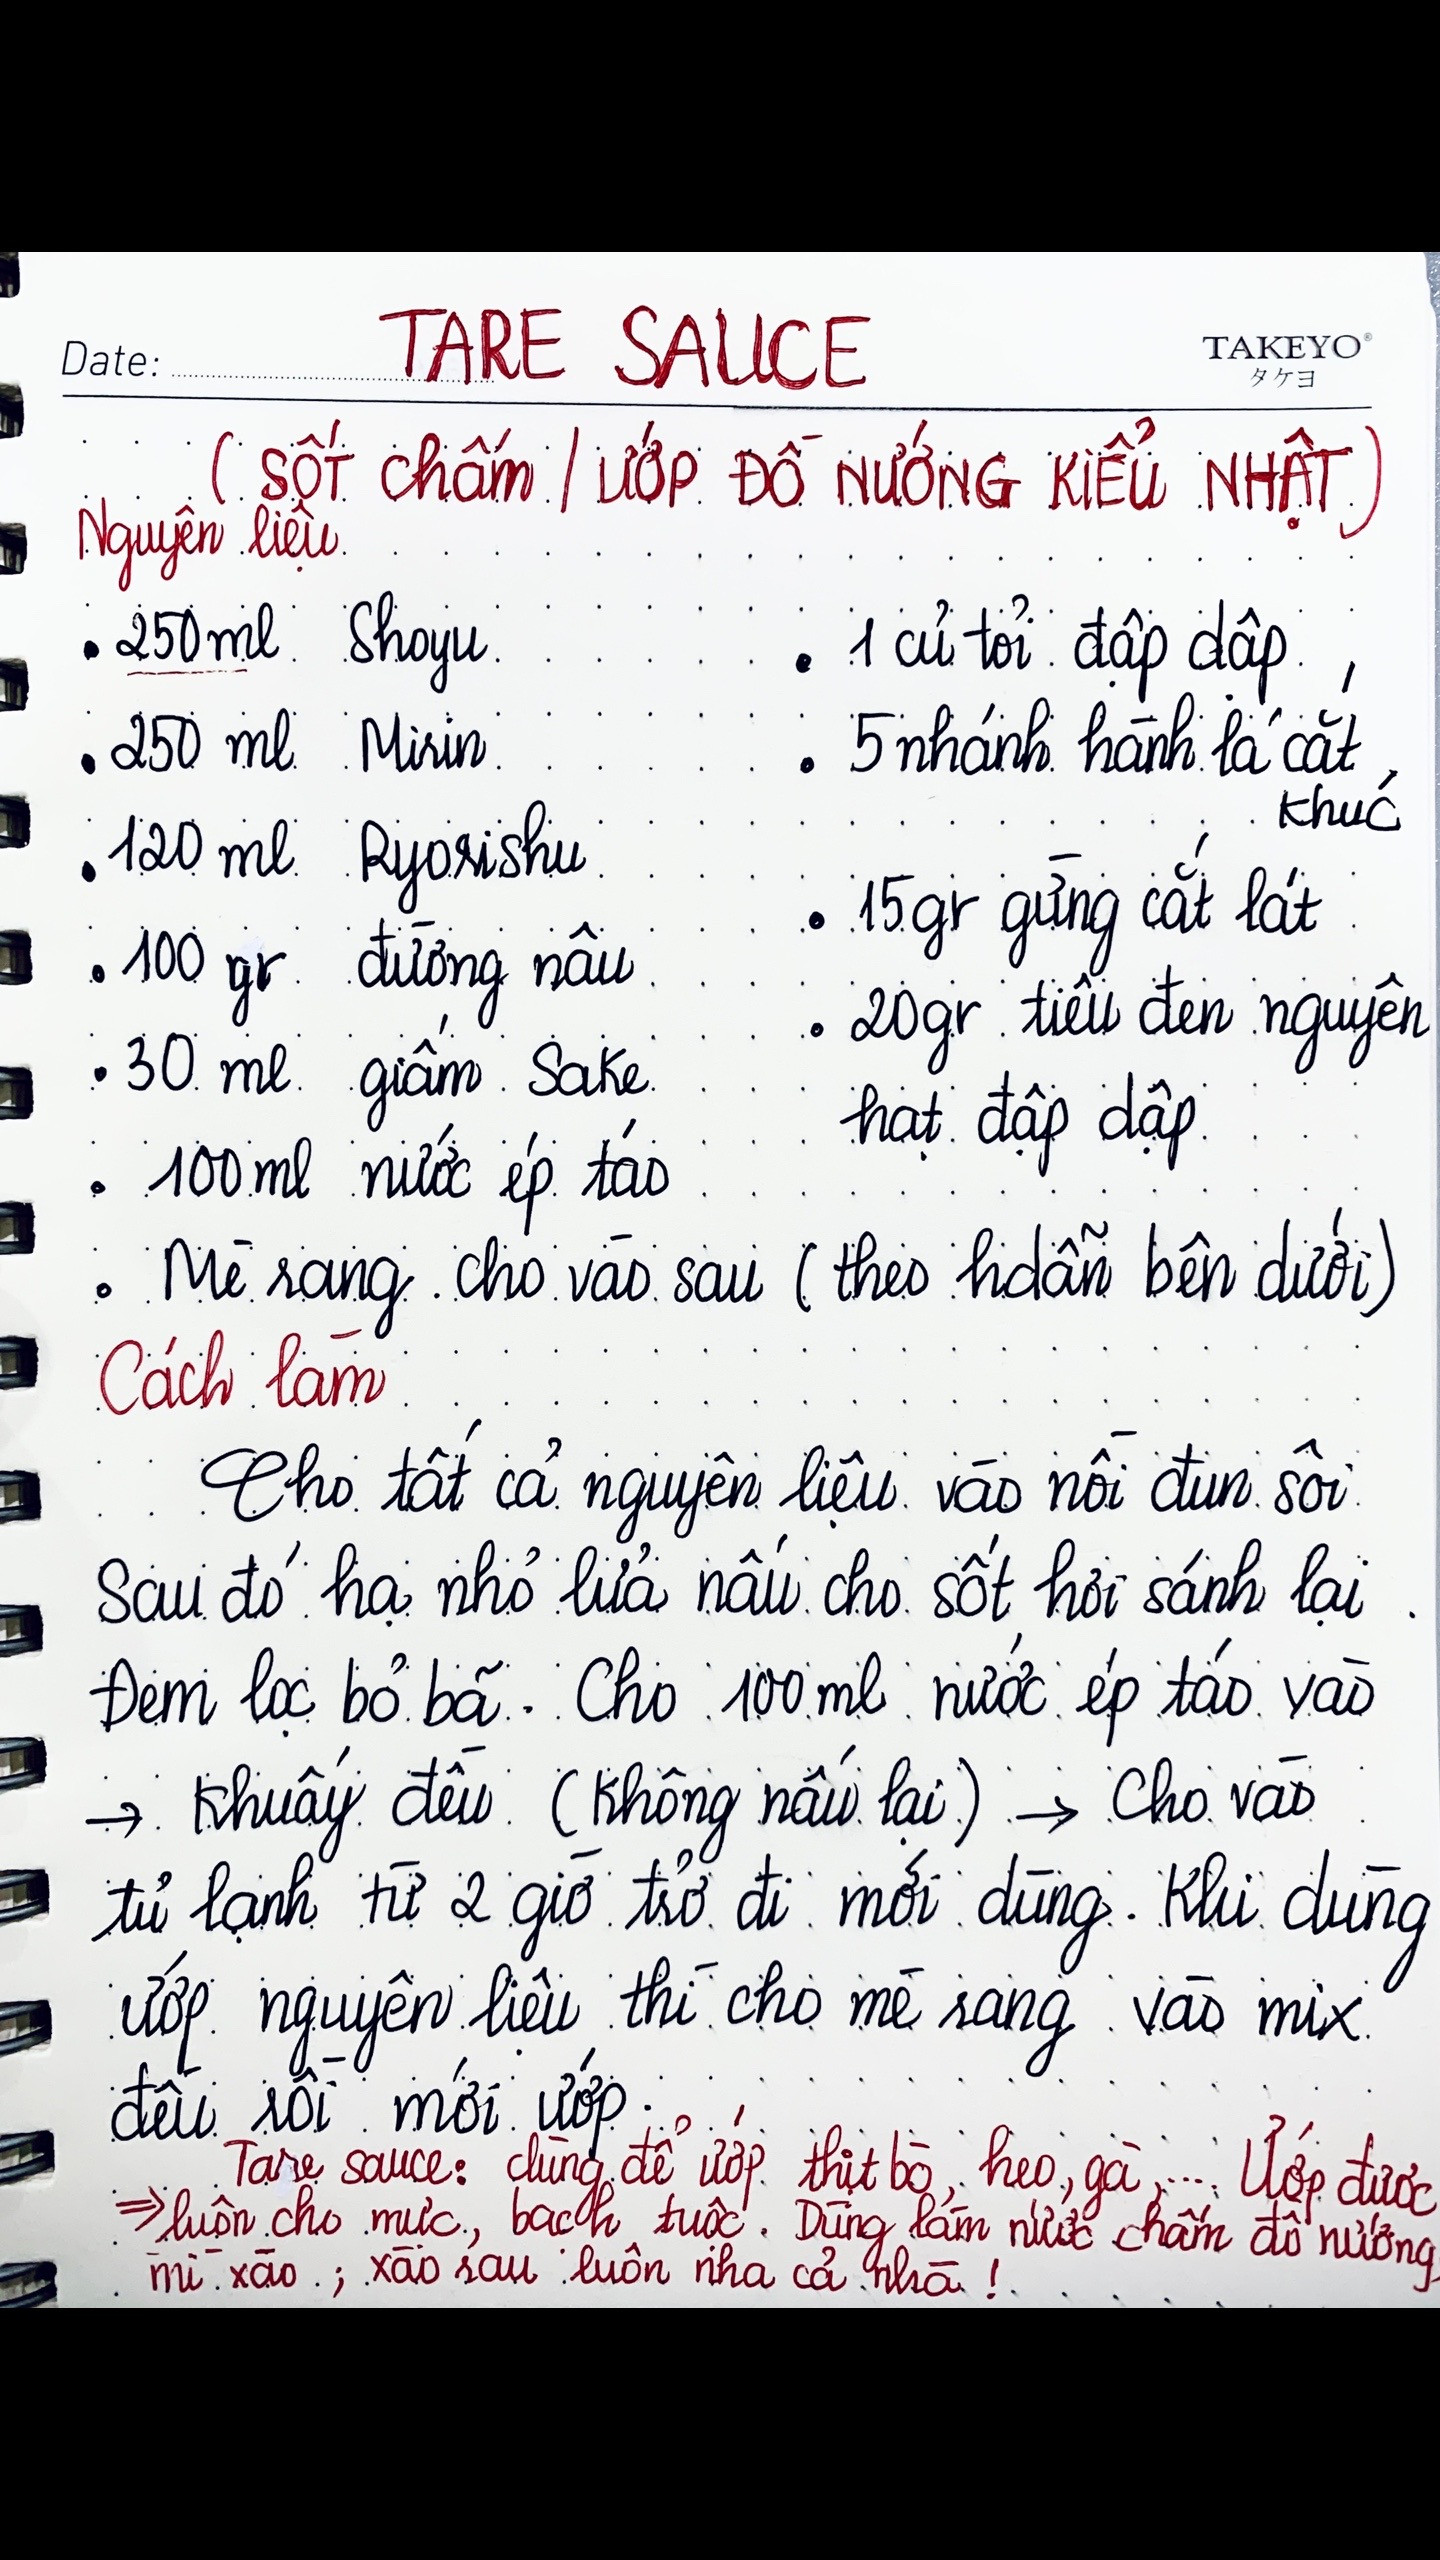 Date: TARE SAUCE
TAKEYO®
タケヨ
( SỐT Chấm / ƯỚP ĐỒ NƯỚNG KIỂU NHẬT )
Nguyên liệu
• 250ml Shoyu
• 250 ml Mirin
• 120 ml Ryorishu
• 100 gr đường nâu
• 30 ml giấm Sake
• 100ml nước ép táo
• 1 củ tỏi đập dập
• 5 nhánh hành lá cắt
khúc
• 15gr gừng cắt lát
• 20gr tiêu đen nguyên
hạt đập dập
• Mè rang cho vào sau ( theo hdẫn bên dưới )
Cách làm
Cho tất cả nguyên liệu vào nồi đun sôi
Sau đó hạ nhỏ lửa nấu cho sốt hơi sánh lại .
Đem lọc bỏ bã . Cho 100ml nước ép táo vào
→ Khuấy đều ( Không nấu lại ) → Cho vào
tủ lạnh từ 2 giờ trở đi mới dùng . Khi dùng
ướp nguyên liệu thì cho mè rang vào mix
đều rồi mới ướp .
Tare sauce : dùng để ướp thịt bò, heo, gà, .... Ướp được
⇒ luôn cho mực, bạch tuộc . Dùng làm nước chấm đồ nướng,
mì xào ; xào rau luôn nha cả nhà !